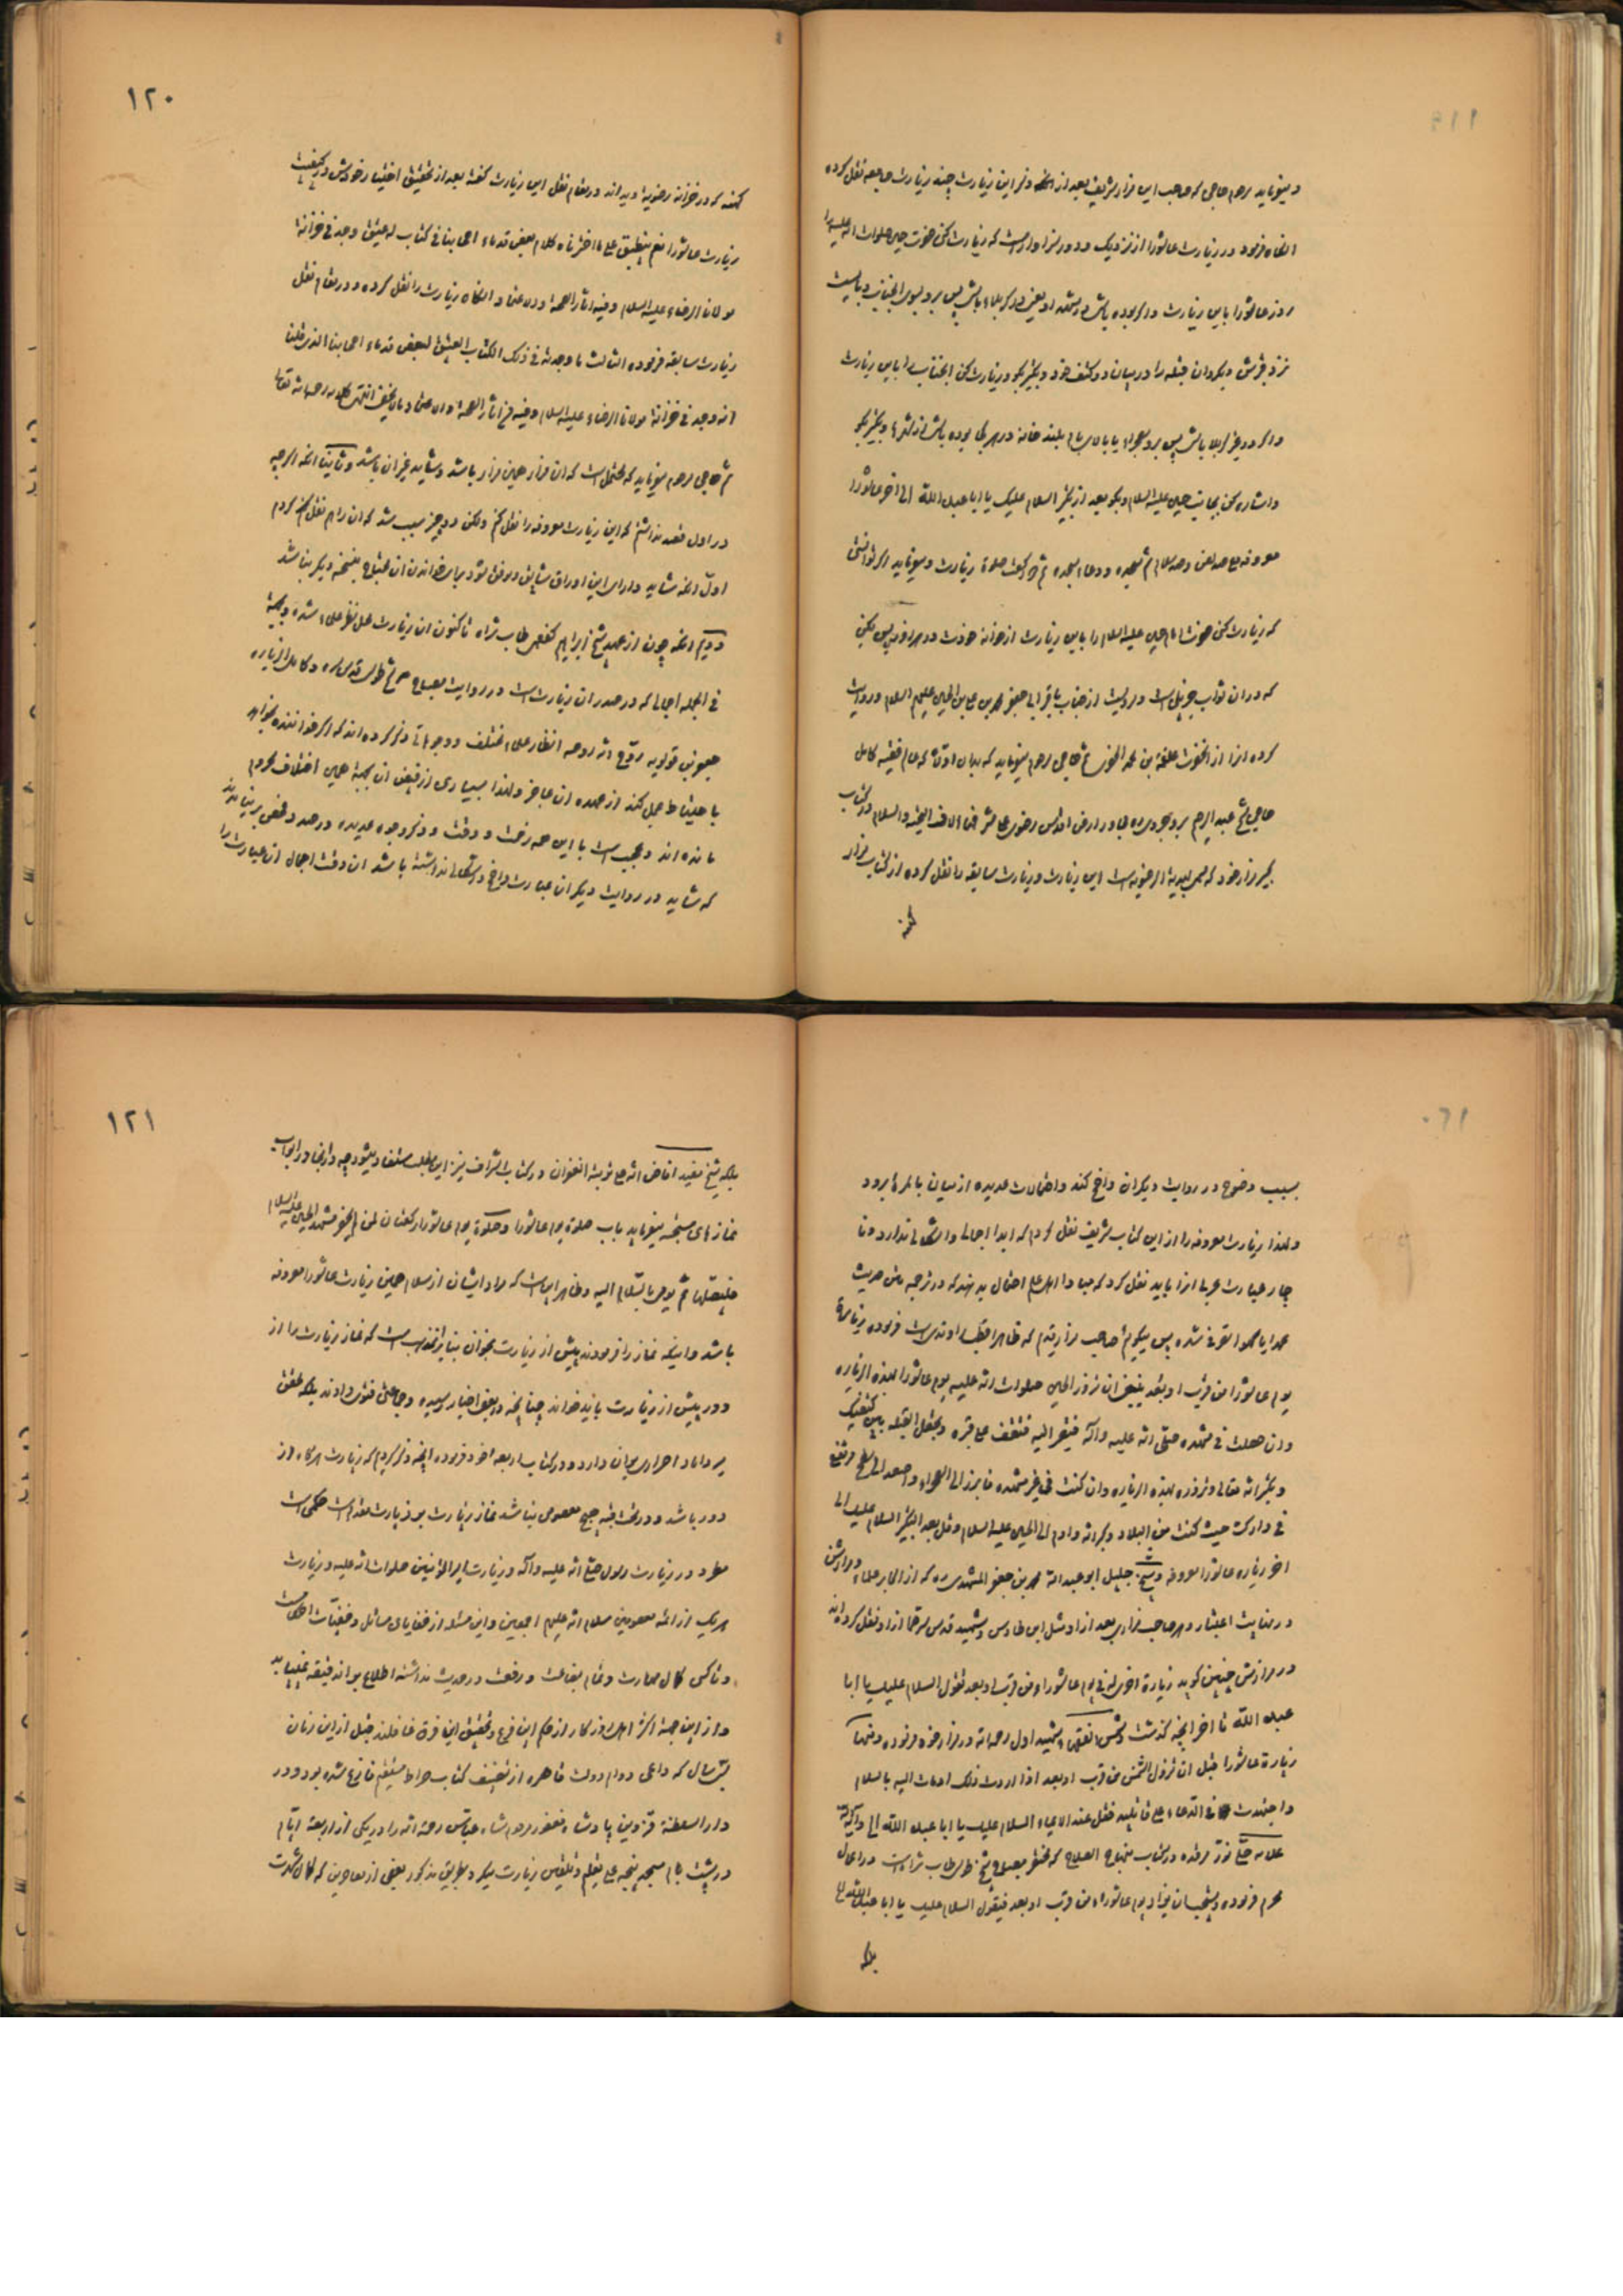 و میفرماید مرحوم حاجی که صاحب این مزار شریف بعد از آنکه ذکر این زیارت چند زیارت جامعه نقل کرده
انگاه فرمود در زیارت عاشورا از نزدیک و دور سزاوار است که زیارت کنی حضرت حسین صلوات الله علیه را
روز عاشورا باین زیارت و اگر بوده باشی در مشهد او یعنی در کربلاء باش پس برو بسوی انجناب و بایست
نزد قبرش و بگردان قبله را در میان دو کتف خود و تکبیر بگو و زیارت کن انجناب را باین زیارت
و اگر در غیر کربلا باشی پس برو بصحراء یا بالای بام بلند خانه در هر جا بوده باشی از شهرها و تکبیر بگو
و اشاره کن بجانب حسین علیه السلام و بگو بعد از تکبیر السلام علیک یا ابا عبد الله الی اخر عاشورا
معروفه مع صد لعن و صد سلام ثم سجده و دعاء سجده ثم دو رکعت صلوة زیارت و میفرماید اگر توانستی
که زیارت کنی حضرت امام حسین علیه السلام را باین زیارت از خانه خودت در هر روز پس بکن
که در ان ثواب جزیل است و مرویست از جناب باقر ابی جعفر محمد بن علی بن الحسین علیهم السلام و روایت
کرده انرا از انحضرت علقمة بن محمد الحضرمی ثم حاجی مرحوم میفرماید که بدان اوثق که عالم فقیه کامل
حاجی شیخ عبد الرحیم بروجردی ره مجاور ارض اقدس رضوی علی مشرفها الاف التحیه والسلام در کتاب
کبیر مزار خود که مسمی بهدیة الرضویه است این زیارت و زیارت سابقه را نقل کرده از کتاب مزار
۱۲۰
کهنه که در خزانه رضویه دیده اند و در مقام نقل این زیارت گفته بعد از تحقیق اختیار خودش در کیفیت
زیارت عاشورا نعم ینطبق علی ما اخترناه کلام بعض قدماء اصحابنا فی کتاب له عتیق وجد فی خزانة
مولانا الرضاء علیه السلام و فیه اثار الصحة و الاعتماد انگاه زیارت را نقل کرده و در مقام نقل
زیارت سابقه فرموده الثالث ما وجدته فی ذلک الکتاب العتیق لبعض قدماء اصحابنا الذی قلنا
انه وجد فی خزانة مولانا الرضاء علیه السلام و فیه من اثار الصحة و الاعتماد مالایخفی انتهی کلامه رحمه الله تعالی
ثم حاجی مرحوم میفرماید که محتمل است که ان مزار همین مزار باشد و شاید غیر ان باشد و ثانیا انکه اگرچه
در اول قصد نداشتم که این زیارت معروفه را نقل کنم ولکن دو چیز سبب شد که ان را هم نقل کردم
اول انکه شاید دارای این اوراق شایق و موفق شود برای خواندن ان محتاج بنسخه دیگر نباشد
دویم انکه چون از عهد شیخ ابراهیم کفعمی طاب ثراه تاکنون ان زیارت محل نظر علماء شده و بجهة
فی الجمله اجمالی که در صدر ان زیارت است در روایت مصباح شیخ طوسی قدس سره و کامل الزیاره
جعفر بن قولویه روح الله روحه انظار علماء مختلف و وجوهاتی ذکر کرده اند که اگر خواننده بخواهد
باحتیاط عمل کند از عهده ان عاجز و لهذا بسیاری از فیض ان بجهة همین اختلاف محروم
مانده اند و عجب است با این همه زحمت و دقت و ذکر وجوه عدیده درصدد فحص برنیامدند
که شاید در روایت دیگر ان عبارت واضح و اشکالی نداشته باشد ان وقت اجمال ان عبارت را
بسبب وضوح در روایت دیگران واضح کند و احتمالات عدیده از میان بالمره برود
و لهذا زیارت معروفه را از این کتاب شریف نقل کردم که ابدا اجمالی و اشکالی ندارد و نا
چار عبارت عربی انرا باید نقل کرد که مبادا اهل علم احتمال بدهند که در ترجمه متن حدیث
عمدا یا سهوا تصرفی شده پس میگویم صاحب مزار قدیم که ظاهرا قطب راوندیست فرموده زیارة
یوم عاشورا من قرب او بعد ینبغی ان تزور الحسین صلوات الله علیه یوم عاشورا بهذه الزیاره
وان حصلت فی مشهده صلی الله علیه وآله فتقبر الیه فتقف علی قبره و تجعل القبلة بین کتفیک
و تکبر الله تعالی و تزوره بهذه الزیاره وان کنت فی غیر مشهده فابرز الی الصحراء و اصعد الی سطح مرتفع
فی دارک حیث کنت من البلاد و کبر الله و اوم الی الحسین علیه السلام و قل بعد التکبیر السلام علیک الی
اخر زیاره عاشورا معروفه و شیخ جلیل ابو عبد الله محمد بن جعفر المشهدی ره که از اکابر علماء و مزارش
در نهایت اعتبار و هر صاحب مزاری بعد از او مثل ابن طاوس و شهید قدس سرهما از او نقل کرده اند
در مزارش چنین گوید زیارة اخری له فی یوم عاشوراء من قرب او بعد تقول السلام علیک یا ابا
عبد الله تا اخر انچه گذشت و شمس الفقهاء شهید اول رحمه الله در مزار خود فرموده و منها
زیارة عاشورا قبل ان تزول الشمس من قرب او بعد اذا اردت ذلک اومات الیه بالسلام
و اجتهدت فی الدعاء علی قاتلیه فقل عند الایماء السلام علیک یا ابا عبد الله الی
علامه حلی نور مرقده در کتاب منهاج الصلاح که مختصر مصباح شیخ طوسی طاب ثراه است در اعمال
محرم فرموده و یستحب ان یزار یوم عاشوراء من قرب او بعد فیقول السلام علیک یا ابا عبد الله الی
بلکه
۱۲۱
بلکه شیخ مفید افاض الله علی تربته الغفران در کتاب اشراف نیز این مطلب مستفاد میشود چه در انجا در ابواب
نمازهای مستحبه میفرماید باب صلوة یوم عاشورا و صلوة یوم عاشورا رکعتان لمن لم یحضر مشهد الحسین علیه السلام
فلیصلهما ثم یومی بالسلام الیه و ظاهر این است که مراد ایشان از سلام همین زیارت عاشورا معروفه
باشد و اینکه نماز را فرمودند پیش از زیارت بخوان بنابر انمذهب است که نماز زیارت را از
دور پیش از زیارت باید خواند چنانچه در بعض اخبار رسیده و جماعتی فتوی دادند بلکه محقق
میرداماد اصراری بران دارد و در کتاب اربعه ایام خود فرموده انچه ذکر کردم که زیارت هرگاه از
دور باشد و در تحت قبه هیچ معصومی نباشد نماز زیارت بر زیارت مقدم است حکمی است
مطرد در زیارت رسول صلی الله علیه وآله و زیارت امیرالمؤمنین صلوات الله علیه و زیارت
هر یک از ائمه معصومین سلام الله علیهم اجمعین و این مسئله از خفایای مسائل و خفیات احکامست
و تا کسی کمال مهارت و تمام بضاعت و رفعت در حدیث نداشته اطلاع بر ان دقیقه نمییابد
و از این جهة اکثر اهل روزگار از حکم این فرع و تحقیق این فرق غافلند قبل از این زمان
سال که داعی دوام دولت قاهره از تصنیف کتاب صراط مستقیم فارغ شده بود و در
دار السلطنة قزوین پادشاه مغفور مرحوم شاه عباس رحمة الله را در یکی از اربعه ایام
در پشت بام مسجد پنجه علی تعلیم و تلقین زیارت میکرد بطریق مذکور بعضی از معاصرین که کمال شهرت